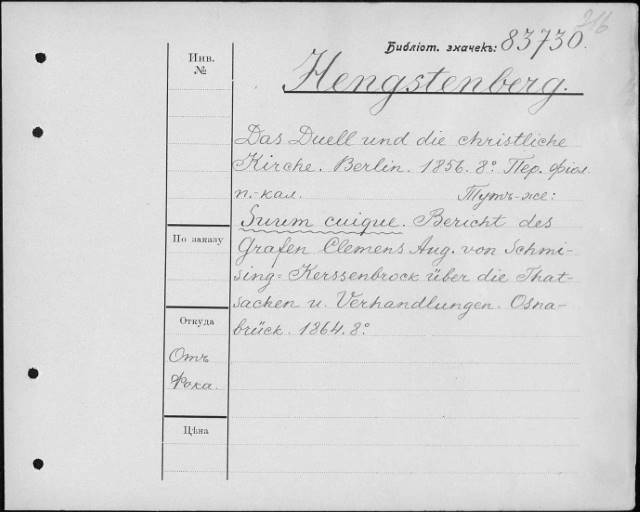 216
Библіот. значекъ: 83730.
Инв.
№
Hengstenberg.
Das Duell und die christliche
Kirche. Berlin. 1856. 8º. Пер. фіол.
п.-кал. Тутъ-же:
Suum cuique. Bericht des
По заказу
Grafen Clemens Aug. von Schmi-
sing=Kerssenbrock über die That-
sachen u. Verhandlungen. Osna-
Откуда
brück. 1864. 8º.
Отъ
Фока.
Цѣна